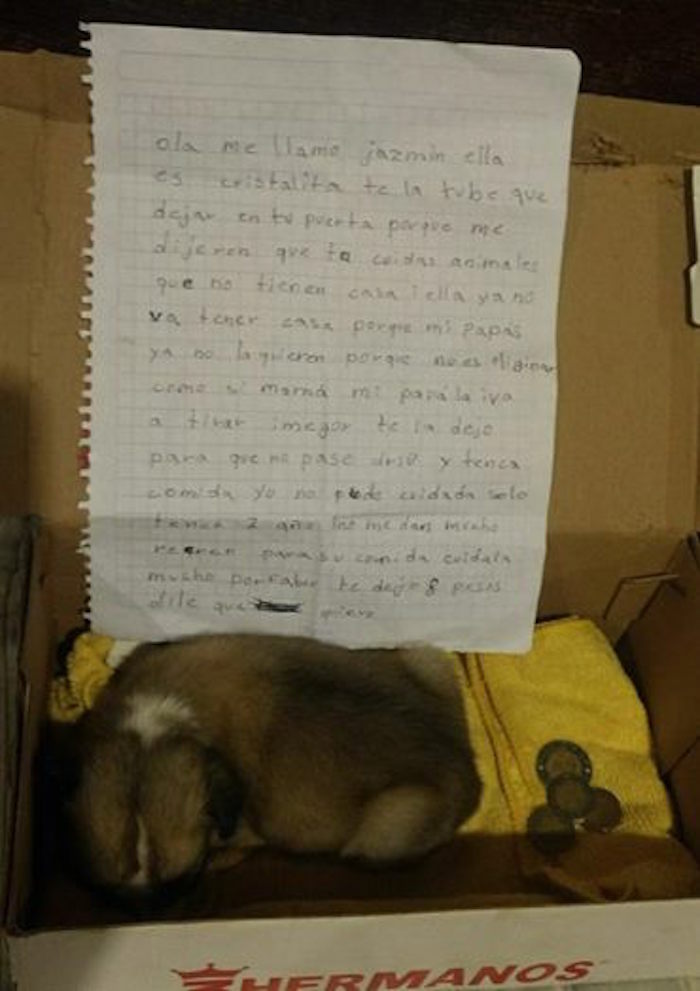 ola me llamo jazmin ella
es cristalita te la tube que
dejar en tu puerta porque me
dijeren que tu cuidas animales
que no tienen casa i ella ya no
va tener casa porque mi papás
ya no la quieren porque no es
como si mamá mi papá la iva
a tirar imegor te la dejo
para que no pase y tenca
comida yo no puedo cuidada solo
tenca 2 año me dan mucho
para su comida cuidala
musho porfabor te dejo 8 pesos
dile que quiero
HERMANOS